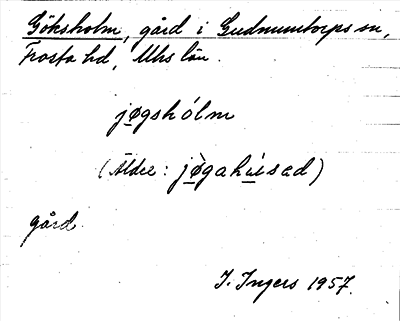 Göksholm, gård i Gudmuntorps sn,
Frosta hd, Mhs län.
jøgshólm
(Äldre: jø̀gahúsad)
gård.
I. Ingers 1957.